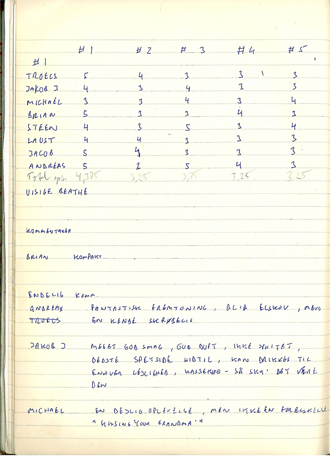 #1 #2 #3 #4 #5
#1
TROELS 5 4 3 3 3
JAKOB J 4 3 4 3 3
MICHAEL 3 3 4 3 4
BRIAN 5 3 3 4 3
STEEN 4 3 5 3 4
LAUST 4 4 3 3 3
JACOB 5 4 3 3 3
ANDREAS 5 2 5 4 3
4,375 3,25 3,75 3,25 3,25
USIGE BEATHE
KOMMENTARER
BRIAN KOMPAKT
ENDELIG KOMM.
ANDREAS FANTASTISK FREMTONING, BLID ELSKOV, MEN
TROELS EN KENDE SKRØBELIG
JAKOB J MEGET GOD SMAG, GOD DUFT, IKKE
BEDSTE SPEYSIDE HIDTIL, KAN DRIKKES TIL
ENHVER LEJLIGHED, - SÅ SKA' DET VÆRE
DEN
MICHAEL EN DEJLIG OPLEVELSE, MEN IKKE EN FORELSKELSE
"KISSING YOUR GRANDMA"